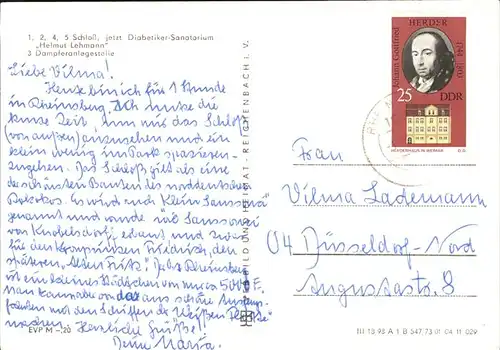 1, 2, 4, 5 Schloß, jetzt Diabetiker-Sanatorium
„Helmut Lehmann"
3 Dampferanlegestelle
Liebe Vilma!
Heute bin ich für 1 Stunde
in Rheinsberg. Ich nutze die
kurze Zeit, um mir das Schloß
(von außen) anzusehen und ein
klein wenig im Park spazieren-
zugehen. Das Schloß gilt als eine
der schönsten Bauten des norddeutschen
Rokokos. Es wird auch Klein Sanssouci
genannt und wurde wie Sanssouci
von Knobelsdorff erbaut und zwar
für den Kronprinzen Friedrich, den
späteren „Alten Fritz". Jetzt Rheinsberg
ist ein kleines Städtchen von 5000 E.
Man kann von da aus schöne
fahrten mit den Schiffen der „Weißen Flotte"
machen. Herzliche Grüße!
Deine Maria.
EVP M –,20
BILD UND HEIMAT · REICHENBACH i. V.
Johann Gottfried
HERDER
1744-1803
25
DDR
Frau
Vilma Lademann
04 Düsseldorf-Nord
Augustastr. 8
III 13 93 A 1 B 547 73 01 04 11 029